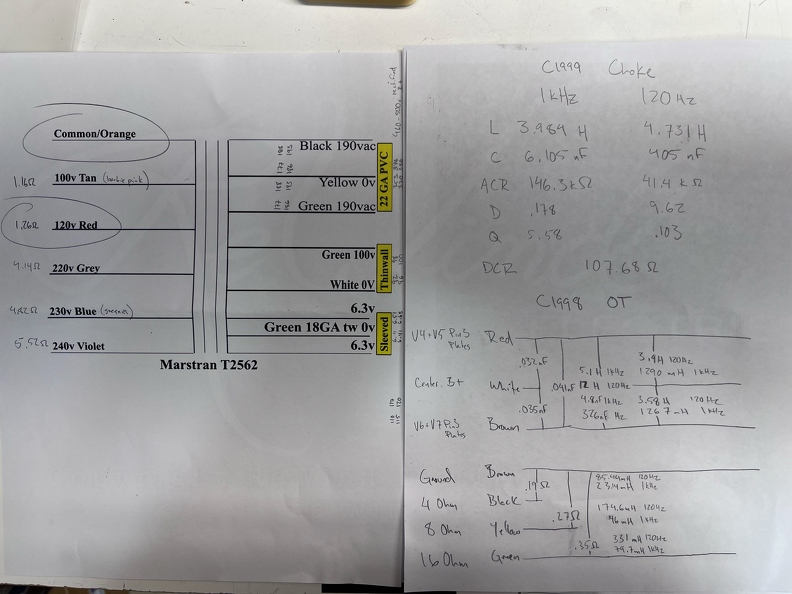 Common/Orange
1.16Ω 100v Tan
1.26Ω 120v Red
4.14Ω 220v Grey
4.82Ω 230v Blue
5.52Ω 240v Violet
Black 190vac
Yellow 0v
Green 190vac
22 GA PVC
Green 100v
White 0V
Thinwall
6.3v
Green 18GA tw 0v
6.3v
Sleeved
Marstran T2562
C1999 Choke
1kHz 120Hz
L 3.984 H 4.731H
C 6.105nF 405nF
ACR 146.3kΩ 41.4kΩ
D .178 9.62
Q 5.58 .103
DCR 107.68Ω
C1998 OT
V4+V5 Pin3 Plates Red
.032nF
5.1H 1kHz
3.9H 120Hz
1290mH 1kHz
Center B+ White
.041nF
12H 120Hz
4.8nF 1kHz
3.58H 120Hz
.035nF
326nF Hz
1267mH 1kHz
V6+V7 Pin3 Plates Brown
Ground Brown
.19Ω
120Hz
1kHz
4 Ohm Black
174.6mH 120Hz
.27Ω
46mH 1kHz
8 Ohm Yellow
331mH 120Hz
.35Ω
79.7mH 1kHz
16 Ohm Green